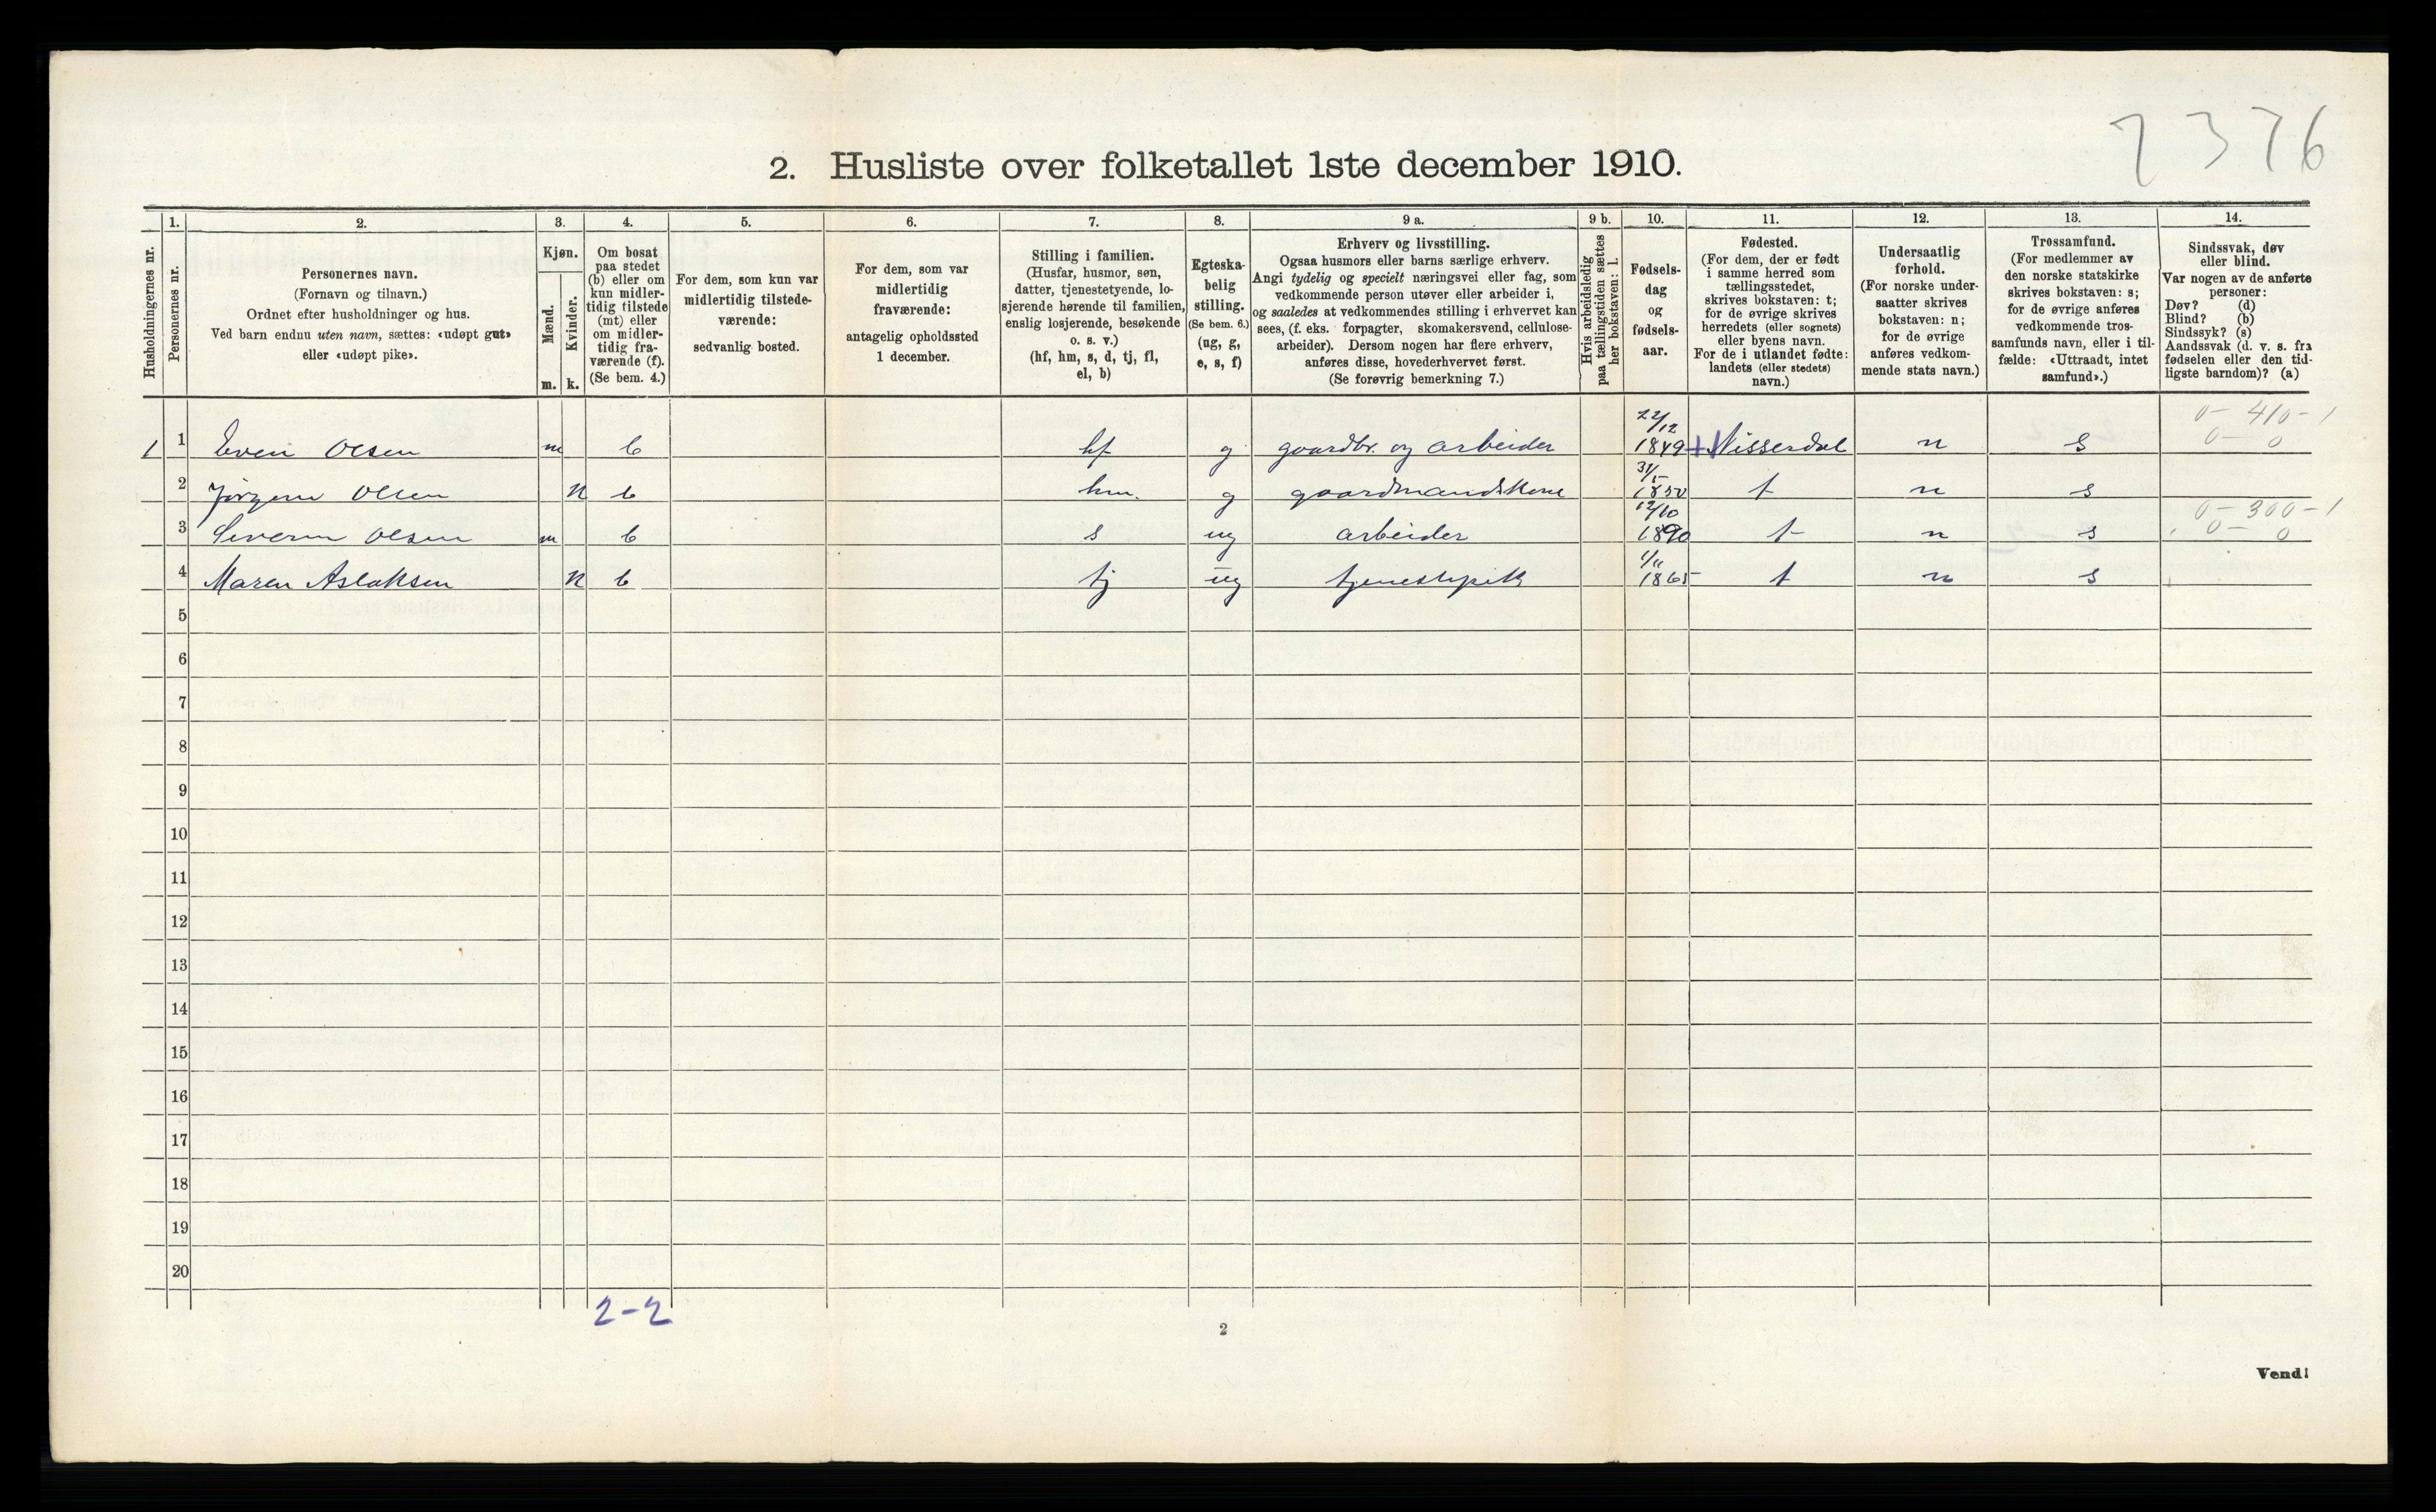 7376
2. Husliste over folketallet 1ste december 1910.
Husholdningernes nr.
1.
Personernes nr.
2.
Personernes navn.
(Fornavn og tilnavn.)
Ordnet efter husholdninger og hus.
Ved barn endnu uten navn, sættes: «udøpt gut»
eller «udøpt pike».
3.
Kjøn.
Mænd.
m.
Kvinder.
k.
4.
Om bosat
paa stedet
(b) eller om
kun midler-
tidig tilstede
(mt) eller
om midler-
tidig fra-
værende (f).
(Se bem. 4.)
5.
For dem, som kun var
midlertidig tilstede-
værende:
sedvanlig bosted.
6.
For dem, som var
midlertidig
fraværende:
antagelig opholdssted
1 december.
7.
Stilling i familien.
(Husfar, husmor, søn,
datter, tjenestetyende, lo-
sjerende hørende til familien,
enslig losjerende, besøkende
o. s. v.)
(hf, hm, s, d, tj, fl,
el, b)
8.
Egteska-
belig
stilling.
(Se bem. 6.)
(ug, g,
e, s, f)
9 a.
Erhverv og livsstilling.
Ogsaa husmors eller barns særlige erhverv.
Angi tydelig og specielt næringsvei eller fag, som
vedkommende person utøver eller arbeider i,
og saaledes at vedkommendes stilling i erhvervet kan
sees, (f. eks. forpagter, skomakersvend, cellulose-
arbeider). Dersom nogen har flere erhverv,
anføres disse, hovederhvervet først.
(Se forøvrig bemerkning 7.)
9 b.
Hvis arbeidsledig
paa tællingstiden sættes
her bokstaven: l.
10.
Fødsels-
dag
og
fødsels-
aar.
11.
Fødested.
(For dem, der er født
i samme herred som
tællingsstedet,
skrives bokstaven: t;
for de øvrige skrives
herredets (eller sognets)
eller byens navn.
For de i utlandet fødte:
landets (eller stedets)
navn.)
12.
Undersaatlig
forhold.
(For norske under-
saatter skrives
bokstaven: n;
for de øvrige
anføres vedkom-
mende stats navn.)
13.
Trossamfund.
(For medlemmer av
den norske statskirke
skrives bokstaven: s;
for de øvrige anføres
vedkommende tros-
samfunds navn, eller i til-
fælde: «Uttraadt, intet
samfund».)
14.
Sindssvak, døv
eller blind.
Var nogen av de anførte
personer:
Døv? (d)
Blind? (b)
Sindssyk? (s)
Aandssvak (d. v. s. fra
fødselen eller den tid-
ligste barndom)? (a)
0- 410-1
0- 0
1 1 Even Olsen m b hf g gaardbr. og arbeider 22/12 1849 + Nisserdal n s
2 Jørgine Olsen k b hm. g gaardmandskone 31/5 1850 t n s
0- 300-1
0- 0
3 Severin Olsen m b s ug arbeider 12/10 1890 t n s
4 Maren Aslaksen k b tj ug tjenestepike 1/11 1865 t n s
5
6
7
8
9
10
11
12
13
14
15
16
17
18
19
20
2-2
2
Vend!